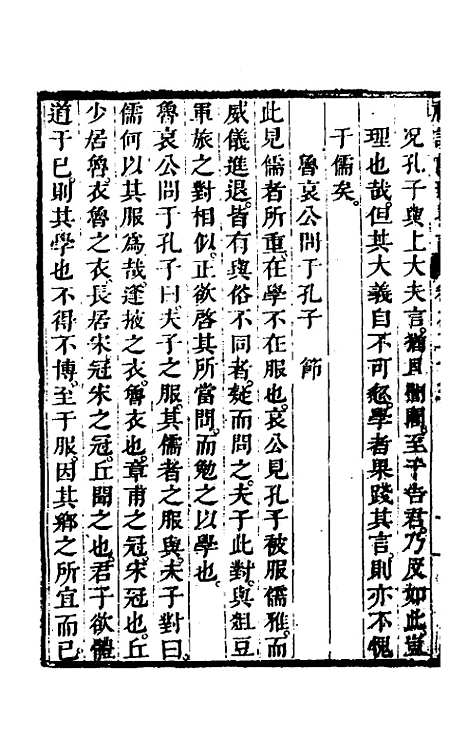 況孔子與上大夫言猶且誾誾至于告君乃反如此豈
理也哉但其大義自不可忽學者果踐其言則亦不愧
于儒矣
魯哀公問于孔子 節
此見儒者所重在學不在服哀公見孔子被服儒雅而
威儀進退皆有與俗不同者疑而問之夫子此對與俎豆
軍旅之對相似正欲啓其所當問而勉之以學也
魯哀公問于孔子曰夫子之服其儒者之服與夫子對曰
儒何以其服爲哉逢掖之衣魯衣也章甫之冠宋冠也丘
少居魯衣魯之衣長居宋冠宋之冠丘聞之也君子欲體
道于已則其學也不得不博至于服因其鄉之所宜而已